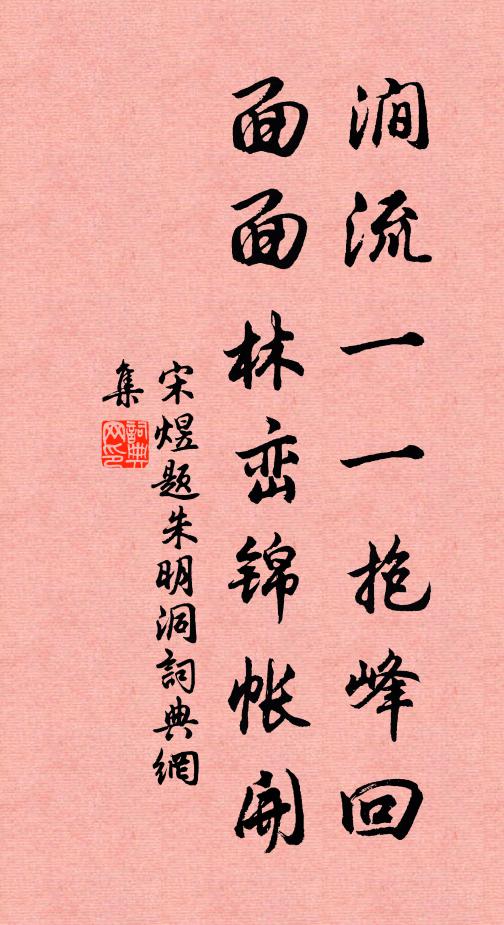 涧流一一抱峰回
面面林峦锦帐开
宋煜题朱明洞詞典網
集
詞典
网印